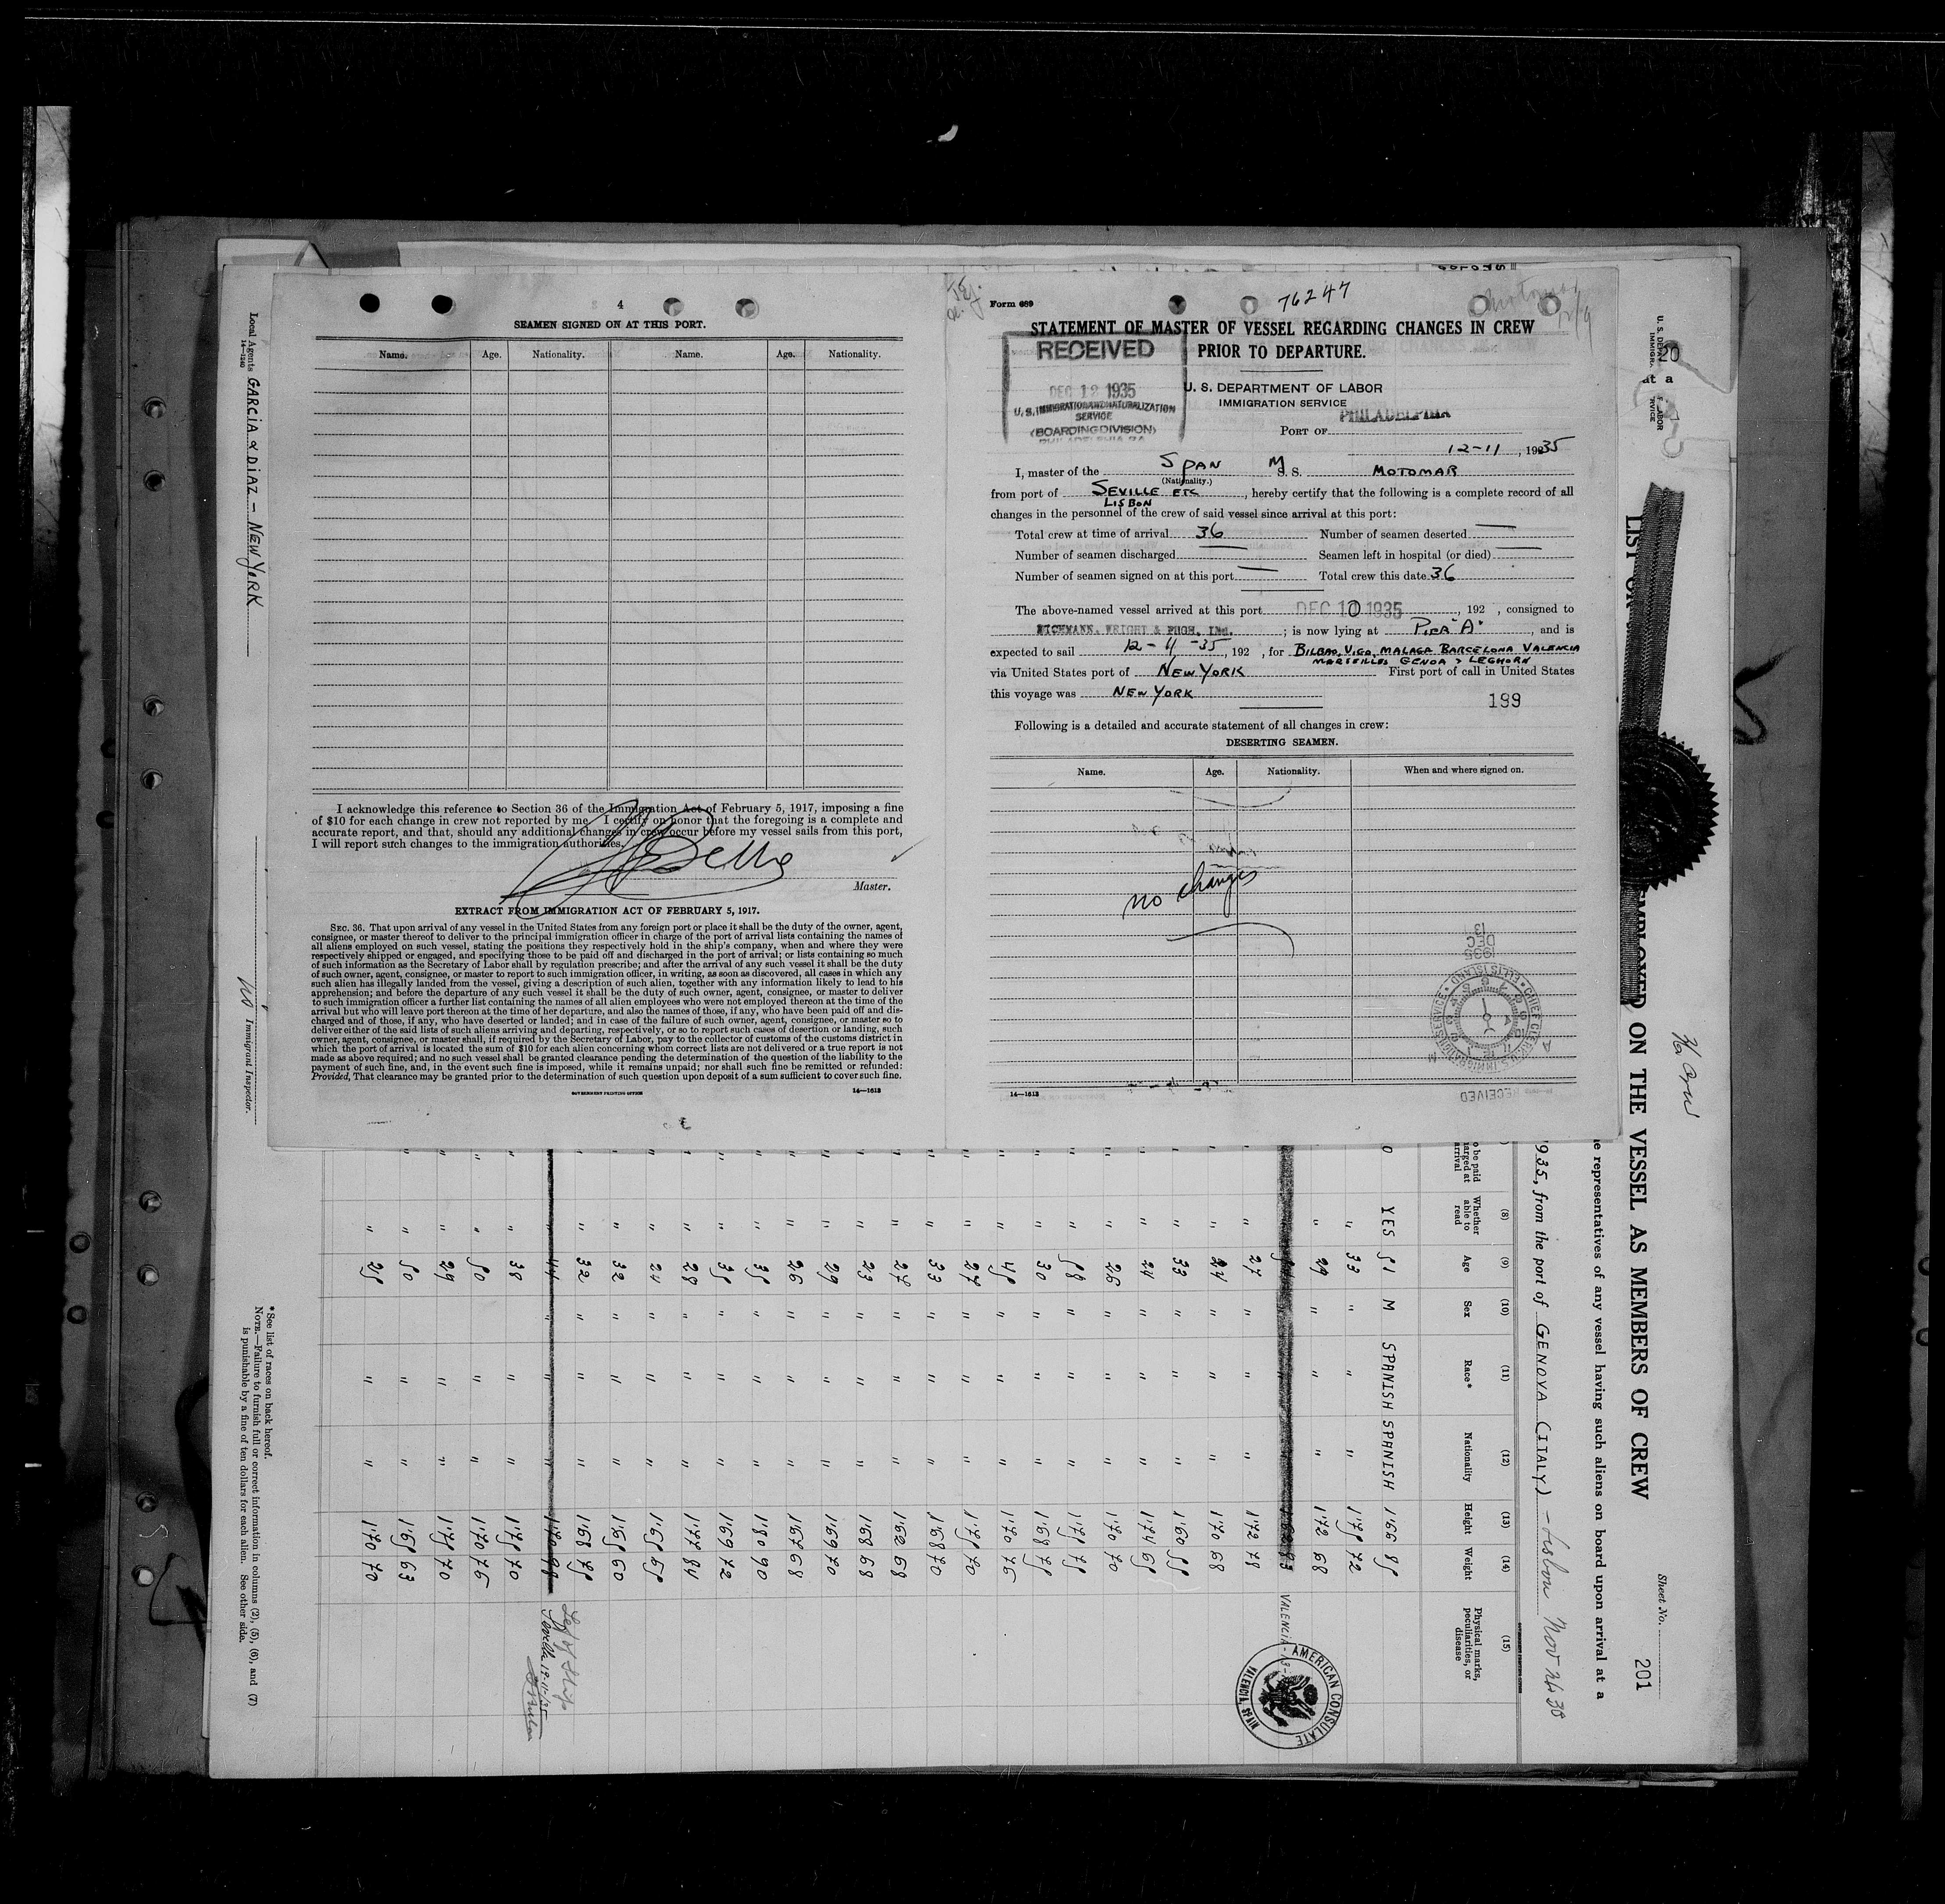 4
SEAMEN SIGNED ON AT THIS PORT.
Name. Age. Nationality. Name. Age. Nationality.
I acknowledge this reference to Section 36 of the Immigration Act of February 5, 1917, imposing a fine
of $10 for each change in crew not reported by me. I certify on honor that the foregoing is a complete and
accurate report, and that, should any additional changes in crew occur before my vessel sails from this port,
I will report such changes to the immigration authorities.
Master.
EXTRACT FROM IMMIGRATION ACT OF FEBRUARY 5, 1917.
SEC. 36. That upon arrival of any vessel in the United States from any foreign port or place it shall be the duty of the owner, agent,
consignee, or master thereof to deliver to the principal immigration officer in charge of the port of arrival lists containing the names of
all aliens employed on such vessel, stating the positions they respectively hold in the ship's company, when and where they were
respectively shipped or engaged, and specifying those to be paid off and discharged in the port of arrival; or lists containing so much
of such information as the Secretary of Labor shall by regulation prescribe; and after the arrival of any such vessel it shall be the duty
of such owner, agent, consignee, or master to report to such immigration officer, in writing, as soon as discovered, all cases in which any
such alien has illegally landed from the vessel, giving a description of such alien, together with any information likely to lead to his
apprehension; and before the departure of any such vessel it shall be the duty of such owner, agent, consignee, or master to deliver
to such immigration officer a further list containing the names of all alien employees who were not employed thereon at the time of the
arrival but who will leave port thereon at the time of her departure, and also the names of those, if any, who have been paid off and dis-
charged and of those, if any, who have deserted or landed; and in case of the failure of such owner, agent, consignee, or master so to
deliver either of the said lists of such aliens arriving and departing, respectively, or so to report such cases of desertion or landing, such
owner, agent, consignee, or master shall, if required by the Secretary of Labor, pay to the collector of customs of the customs district in
which the port of arrival is located the sum of $10 for each alien concerning whom correct lists are not delivered or a true report is not
made as above required; and no such vessel shall be granted clearance pending the determination of the question of the liability to the
payment of such fine, and, in the event such fine is imposed, while it remains unpaid; nor shall such fine be remitted or refunded:
Provided, That clearance may be granted prior to the determination of such question upon deposit of a sum sufficient to cover such fine.
GOVERNMENT PRINTING OFFICE 14—1613
Form 689
76247
STATEMENT OF MASTER OF VESSEL REGARDING CHANGES IN CREW
PRIOR TO DEPARTURE.
RECEIVED
DEC 12 1935
U.S. IMMIGRATION AND NATURALIZATION
SERVICE
(BOARDING DIVISION)
PHILADELPHIA PA
U. S. DEPARTMENT OF LABOR
IMMIGRATION SERVICE
PORT OF PHILADELPHIA
12-11, 1935
I, master of the SPAN M S. S. MOTOMAR
(Nationality.)
from port of SEVILLE ETC LISBON, hereby certify that the following is a complete record of all
changes in the personnel of the crew of said vessel since arrival at this port:
Total crew at time of arrival 36 Number of seamen deserted —
Number of seamen discharged — Seamen left in hospital (or died) —
Number of seamen signed on at this port — Total crew this date 36
The above-named vessel arrived at this port DEC 10 1935, 192 , consigned to
WRIGHT & PUGH, ; is now lying at PIER "A", and is
expected to sail 12-11-35, 192 , for BILBAO, VIGO, MALAGA BARCELONA VALENCIA
MARSEILLES GENOA & LEGHORN
via United States port of NEW YORK First port of call in United States
this voyage was NEW YORK
199
Following is a detailed and accurate statement of all changes in crew:
DESERTING SEAMEN.
Name. Age. Nationality. When and where signed on.
no changes
1935
DEC
13
CHIEF CLERK U.S. IMMIGRATION SERVICE • ELLIS ISLAND
RECEIVED
14—1613
Local Agents GARCIA & DIAZ - NEW YORK
14—1240
Immigrant Inspector.
EMPLOYED ON THE VESSEL AS MEMBERS OF CREW
Sheet No.
201
representatives of any vessel having such aliens on board upon arrival at a
1935, from the port of GENOVA (ITALY) - Lisbon Nov
(8) (9) (10) (11) (12) (13) (14) (15)
Whether able to read Age Sex Race* Nationality Height Weight Physical marks, peculiarities, or disease
YES 51 M SPANISH SPANISH 1'66 85
" 33 " " " 1'75 72
" 29 " " " 1'72 68
VALENCIA
" 27 " " " 1'72 78
" 24 " " " 1'70 68
" 33 " " " 1'60 55
" 24 " " " 1'74 65
" 26 " " " 1'70 70
" 58 " " " 1'75 75
" 30 " " " 1'68 75
" 45 " " " 1'70 76
" 27 " " " 1'75 70
" 33 " " " 1'68 70
" 27 " " " 1'62 68
" 23 " " " 1'68 68
" 29 " " " 1'69 70
" 26 " " " 1'67 68
" 35 " " " 1'80 90
" 35 " " " 1'69 72
" 28 " " " 1'77 84
" 24 " " " 1'65 65
" 32 " " " 1'65 60
" 32 " " " 1'68 75
" 44 " " "
" 38 " " " 1'75 70
" 50 " " " 1'70 76
" 29 " " " 1'75 70
" 50 " " " 1'65 63
" 25 " " " 1'70 70
AMERICAN CONSULATE
VALENCIA,
*See list of races on back hereof.
NOTE.—Failure to furnish full or correct information in columns (2), (5), (6), and (7)
is punishable by a fine of ten dollars for each alien. See other side.